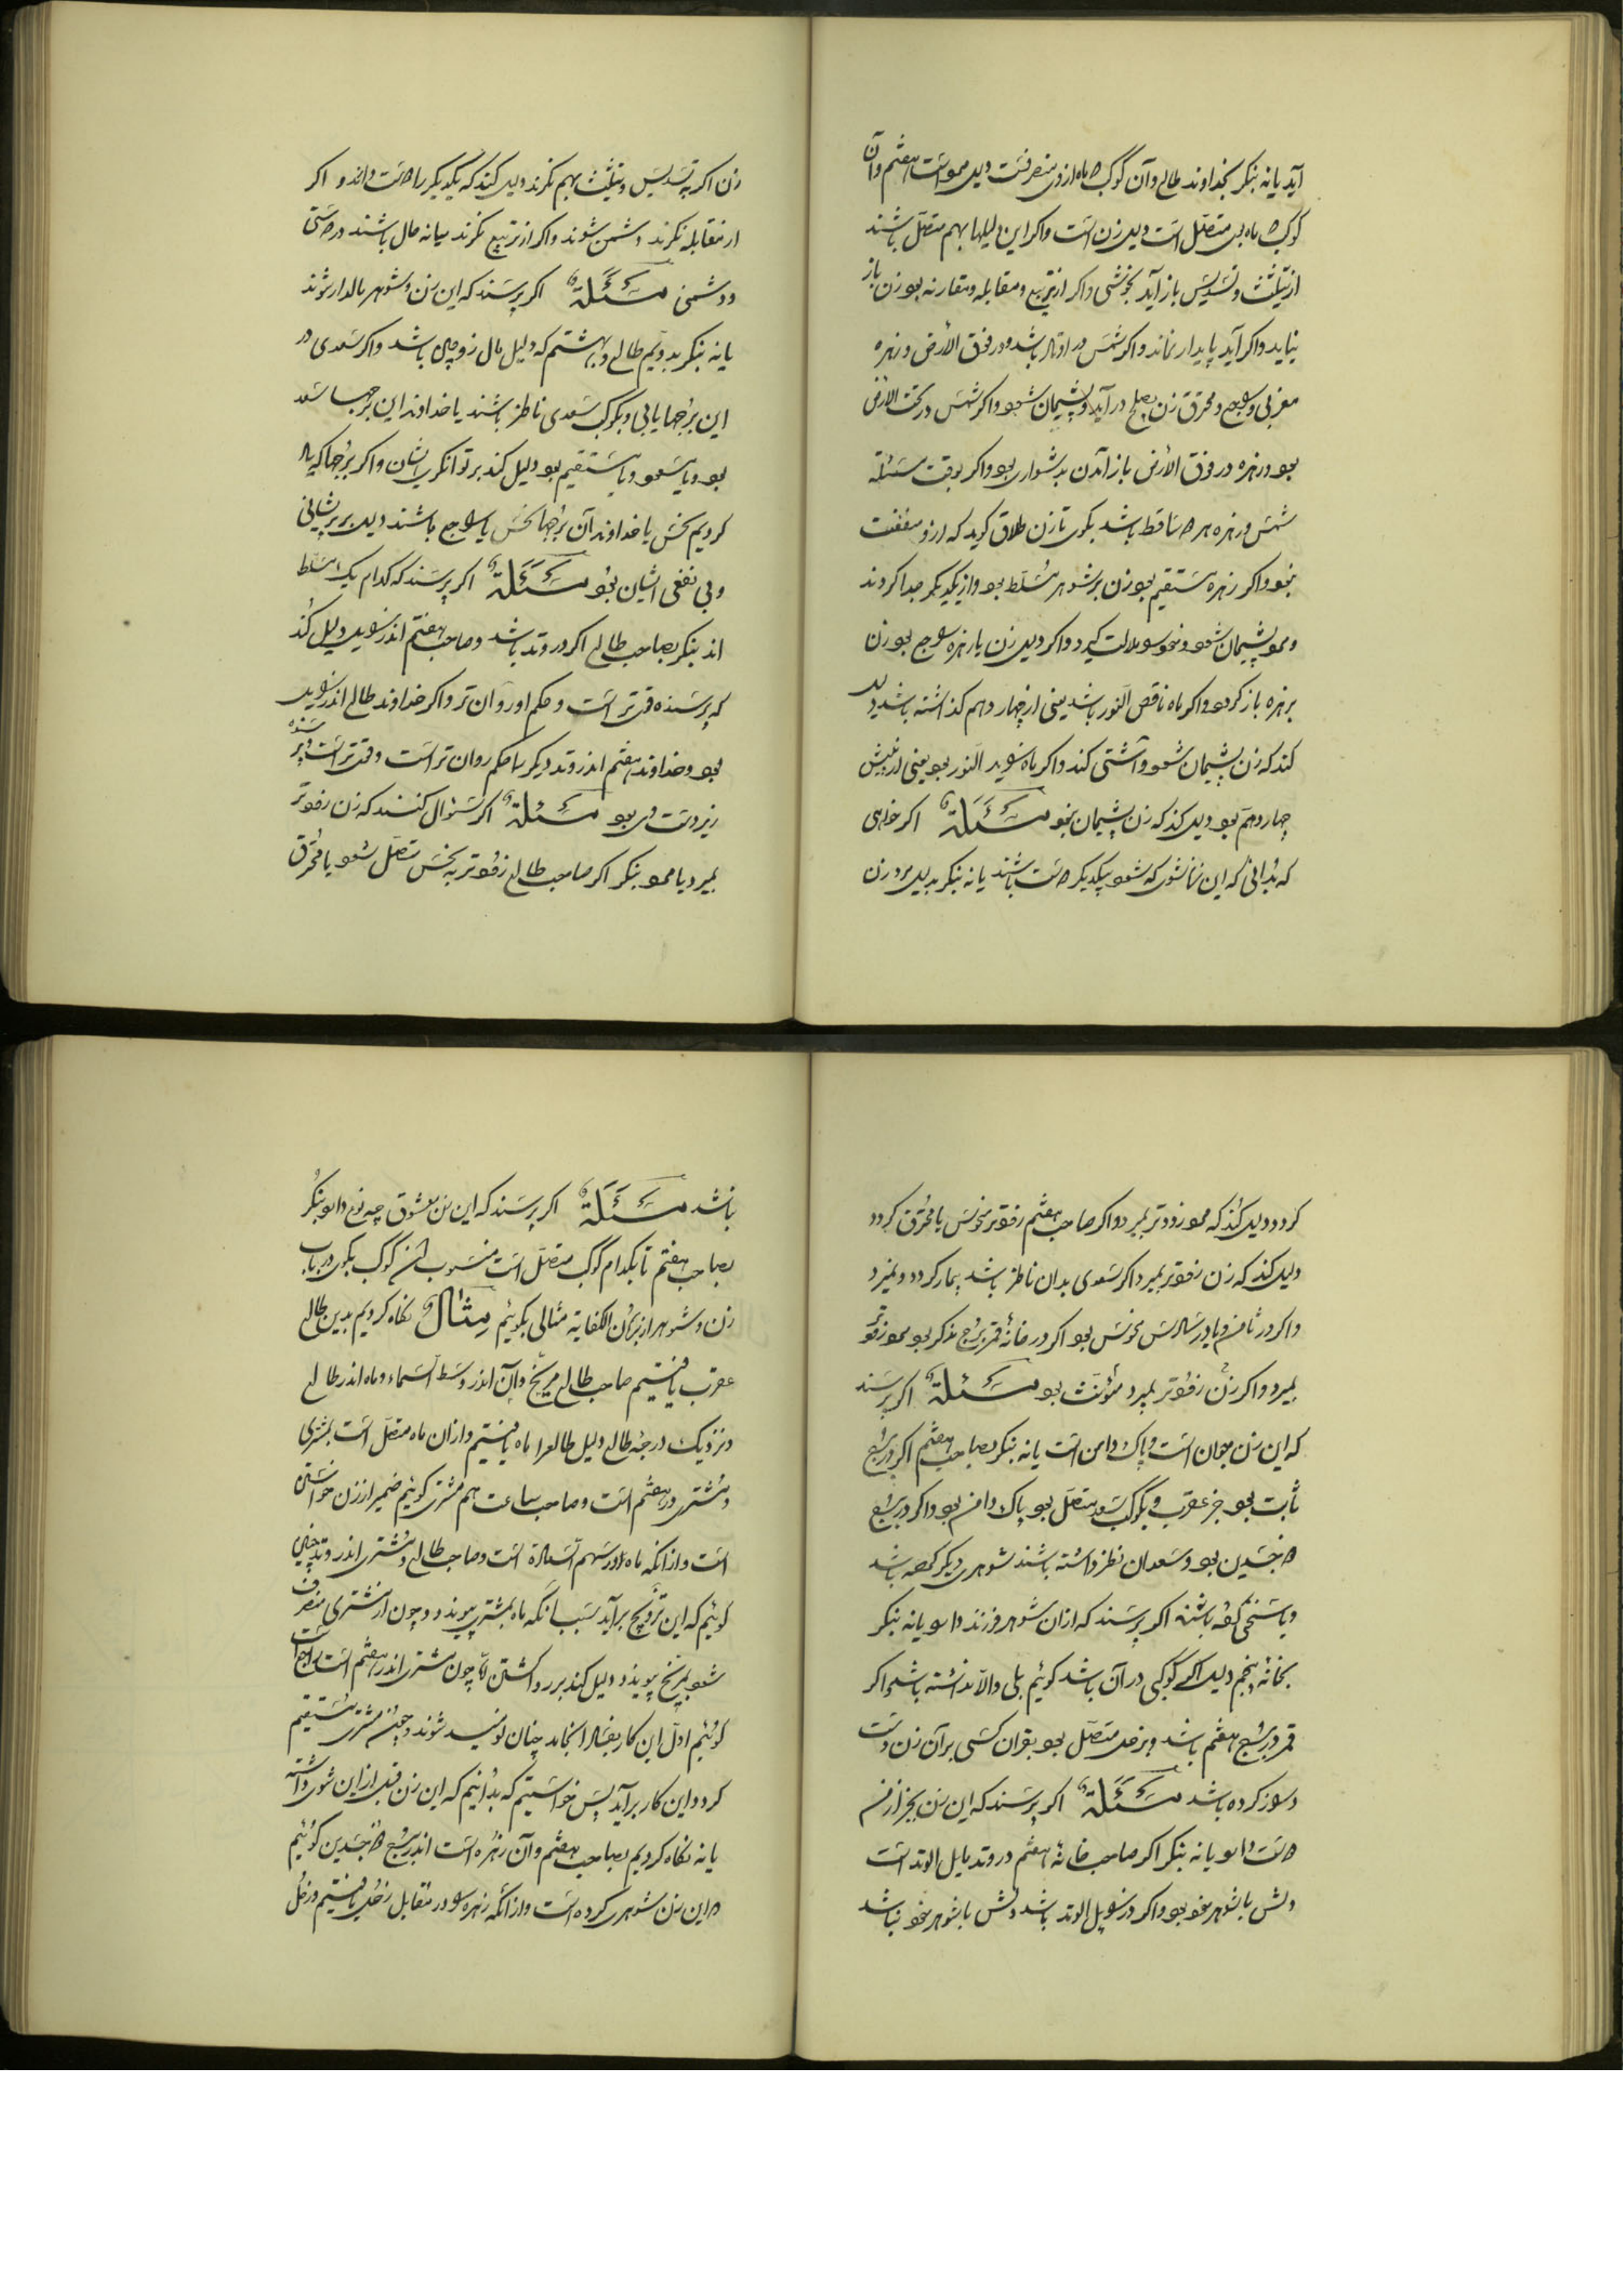 آید یا نه بنکر بخداوند طالع وآن کوکب که ماه ازوی منصرفست دلیل مرد است هفتم وآن
کوکب که ماه بدو متصل است دلیل زن است واکر این دلیلها بهم متصل باشند
از تثلیث وتسدیس باز آید بخوشی واکر از تربیع ومقابله ومقارنه بود زن باز
نیاید واکر آید پایدار نماند واکر شمس در اوتاد باشد ودر فوق الأرض وزهره
مغربی وراجع ومحترق زن بصلح درآید وپشیمان شود واکر شمس در تحت الارض
بود وزهره در فوق الأرض باز آمدن بدشواری بود واکر بوقت مسئلة
شمس وزهره هر دو ساقط باشد بکوی تا زن طلاق کوید که ازو منفعت
نبود واکر زهره مستقیم بود زن بر شوهر مسلط بود واز یکدیکر جدا کردند
ومرد پشیمان شود ونحو سوملالت کیرد واکر دلیل زن یا زهره راجع بود زن
بزهره باز کردد واکر ماه ناقص النور باشد یعنی از چهاردهم کذاشته باشد دلیل
کند که زن پشیمان شود وآشتی کند واکر ماه زاید النور بود یعنی از پیش
چهاردهم بود دلیل کند که زن پشیمان نبود مَسْئَلَة اکر خواهی
که بدانی که این زناشوی که شود بیکدیکر دوست باشند یا نه بنکر بدلیل مرد وزن
زن اکر بتسدیس وتثلیث بهم نکرند دلیل کند که یکدیکر را دوست دارند و اکر
از مقابله نکرند دشمن شوند واکر از تربیع نکرند میانه حال باشند در دوستی
ودشمنی مَسْئَلَة اکر پرسند که این زن وشوهر مالدار شوند
یا نه بنکر بدویم طالع وبهشتم که دلیل مال زوجین باشد واکر سعدی در
این برجها یابی وبکوکب سعدی ناظر باشند یا خداوند این برجها سعد
بود ویا مسعود ویا مستقیم بود دلیل کند بر توانکری ایشان واکر برجها که یاد
کردیم نحس یا خداوند آن برجها نحس یا راجع باشند دلیل بر پریشانی
وبی نفعی ایشان بود مَسْئَلَة اکر پرسند که کدام یک مسلط
اند بنکر بصاحب طالع اکر در وتد باشد وصاحب هفتم اندر زایل دلیل کند
که پرسنده قوی تر است وحکم او روان تر واکر خداوند طالع اندر زایل
بود وخداوند هفتم اندر وتد دیکر را حکم روان تر است وقوی تر است وپرسنده
زیر دست وی بود مَسْئَلَة اکر سئوال کنند که زن زودتر
بمیرد یا مرد بنکر اکر صاحب طالع زودتر به نحس متصل شود یا محترق
کردد دلیل کند که مرد زودتر بمیرد واکر صاحب هفتم زودتر منحوس یا محترق کردد
دلیل کند که زن زودتر بمیرد واکر سعدی بدان ناظر باشد بیمار کردد ونمیرد
واکر در ثامن ویا در سادس نحوس بود اکر در خانهٔ قمر برج مذکر بود مرد زودتر
بمیرد واکر زن زودتر بمیرد مؤنث بود مَسْئَلَة اکر پرسند
که این زن جوان است وپاک دامن است یا نه بنکر بصاحب هفتم اکر در برج
ثابت بود جز عقرب وبکوکب سعد متصل بود پاک دامن بود واکر در برج
دو جسدین بود وسعدان نظر داشته باشند شوهری دیکر کرده باشد
اکر پرسند که از ان شوهر فرزند دارد یا نه بنکر
بخانهٔ پنجم دلیل اکر کوکبی در آن باشد کوئیم بلی والّا نداشته باشد واکر
قمر در برج هفتم باشد وبزحل متصل بود بقران کسی بر آن زن دست
دراز کرده باشد مَسْئَلَة اکر پرسند که این زن بجز از من
دوست دارد یا نه بنکر اکر صاحب خانهٔ هفتم در وتد مایل الوتد است
دلش با شوهر خود بود واکر در زایل الوتد باشد دلش با شوهر خود نباشد
باشد مَسْئَلَة اکر پرسند که این زن معشوق چه نوع دارد بنکر
بصاحب هفتم تا بکدام کوکب متصل است منسوب بدان کوکب بکوی در باب
زن وشوهر از برهان الکفایه مثالی بکوئیم مِثال نکاه کردیم بدین طالع
عقرب یافتیم صاحب طالع مریخ وآن اندر وسط السماء وماه اندر طالع
ونزدیک درجهٔ طالع دلیل طالع را ماه یافتیم واز ان ماه متصل است بمشتری
ومشتری در هفتم است وصاحب ساعت هم مشتری کوئیم ضمیر از زن خواستن
است واز آنکه ماه در سهم السعادة است وصاحب طالع ومشتری اندر وتد چنین
کوئیم که این تزویج برآید بسبب آنکه ماه بمشتری پیوندد وچون از مشتری منصرف
شود بمریخ پیوندد دلیل کند بر رد کشتن امّا چون مشتری اندر هفتم است راجع است
کوئیم اول این کار بفساد انجامد چنان نومید شوند وچون مشتری مستقیم
کردد این کار برآید پس خواستیم که بدانیم که این زن قبل از این شوی داشته
یا نه نکاه کردیم بصاحب هفتم وآن زهره است اندر برج ذو جسدین کوئیم
که این زن شوهری کرده است واز آنکه زهره را در مقابل زحل یافتیم وزحل